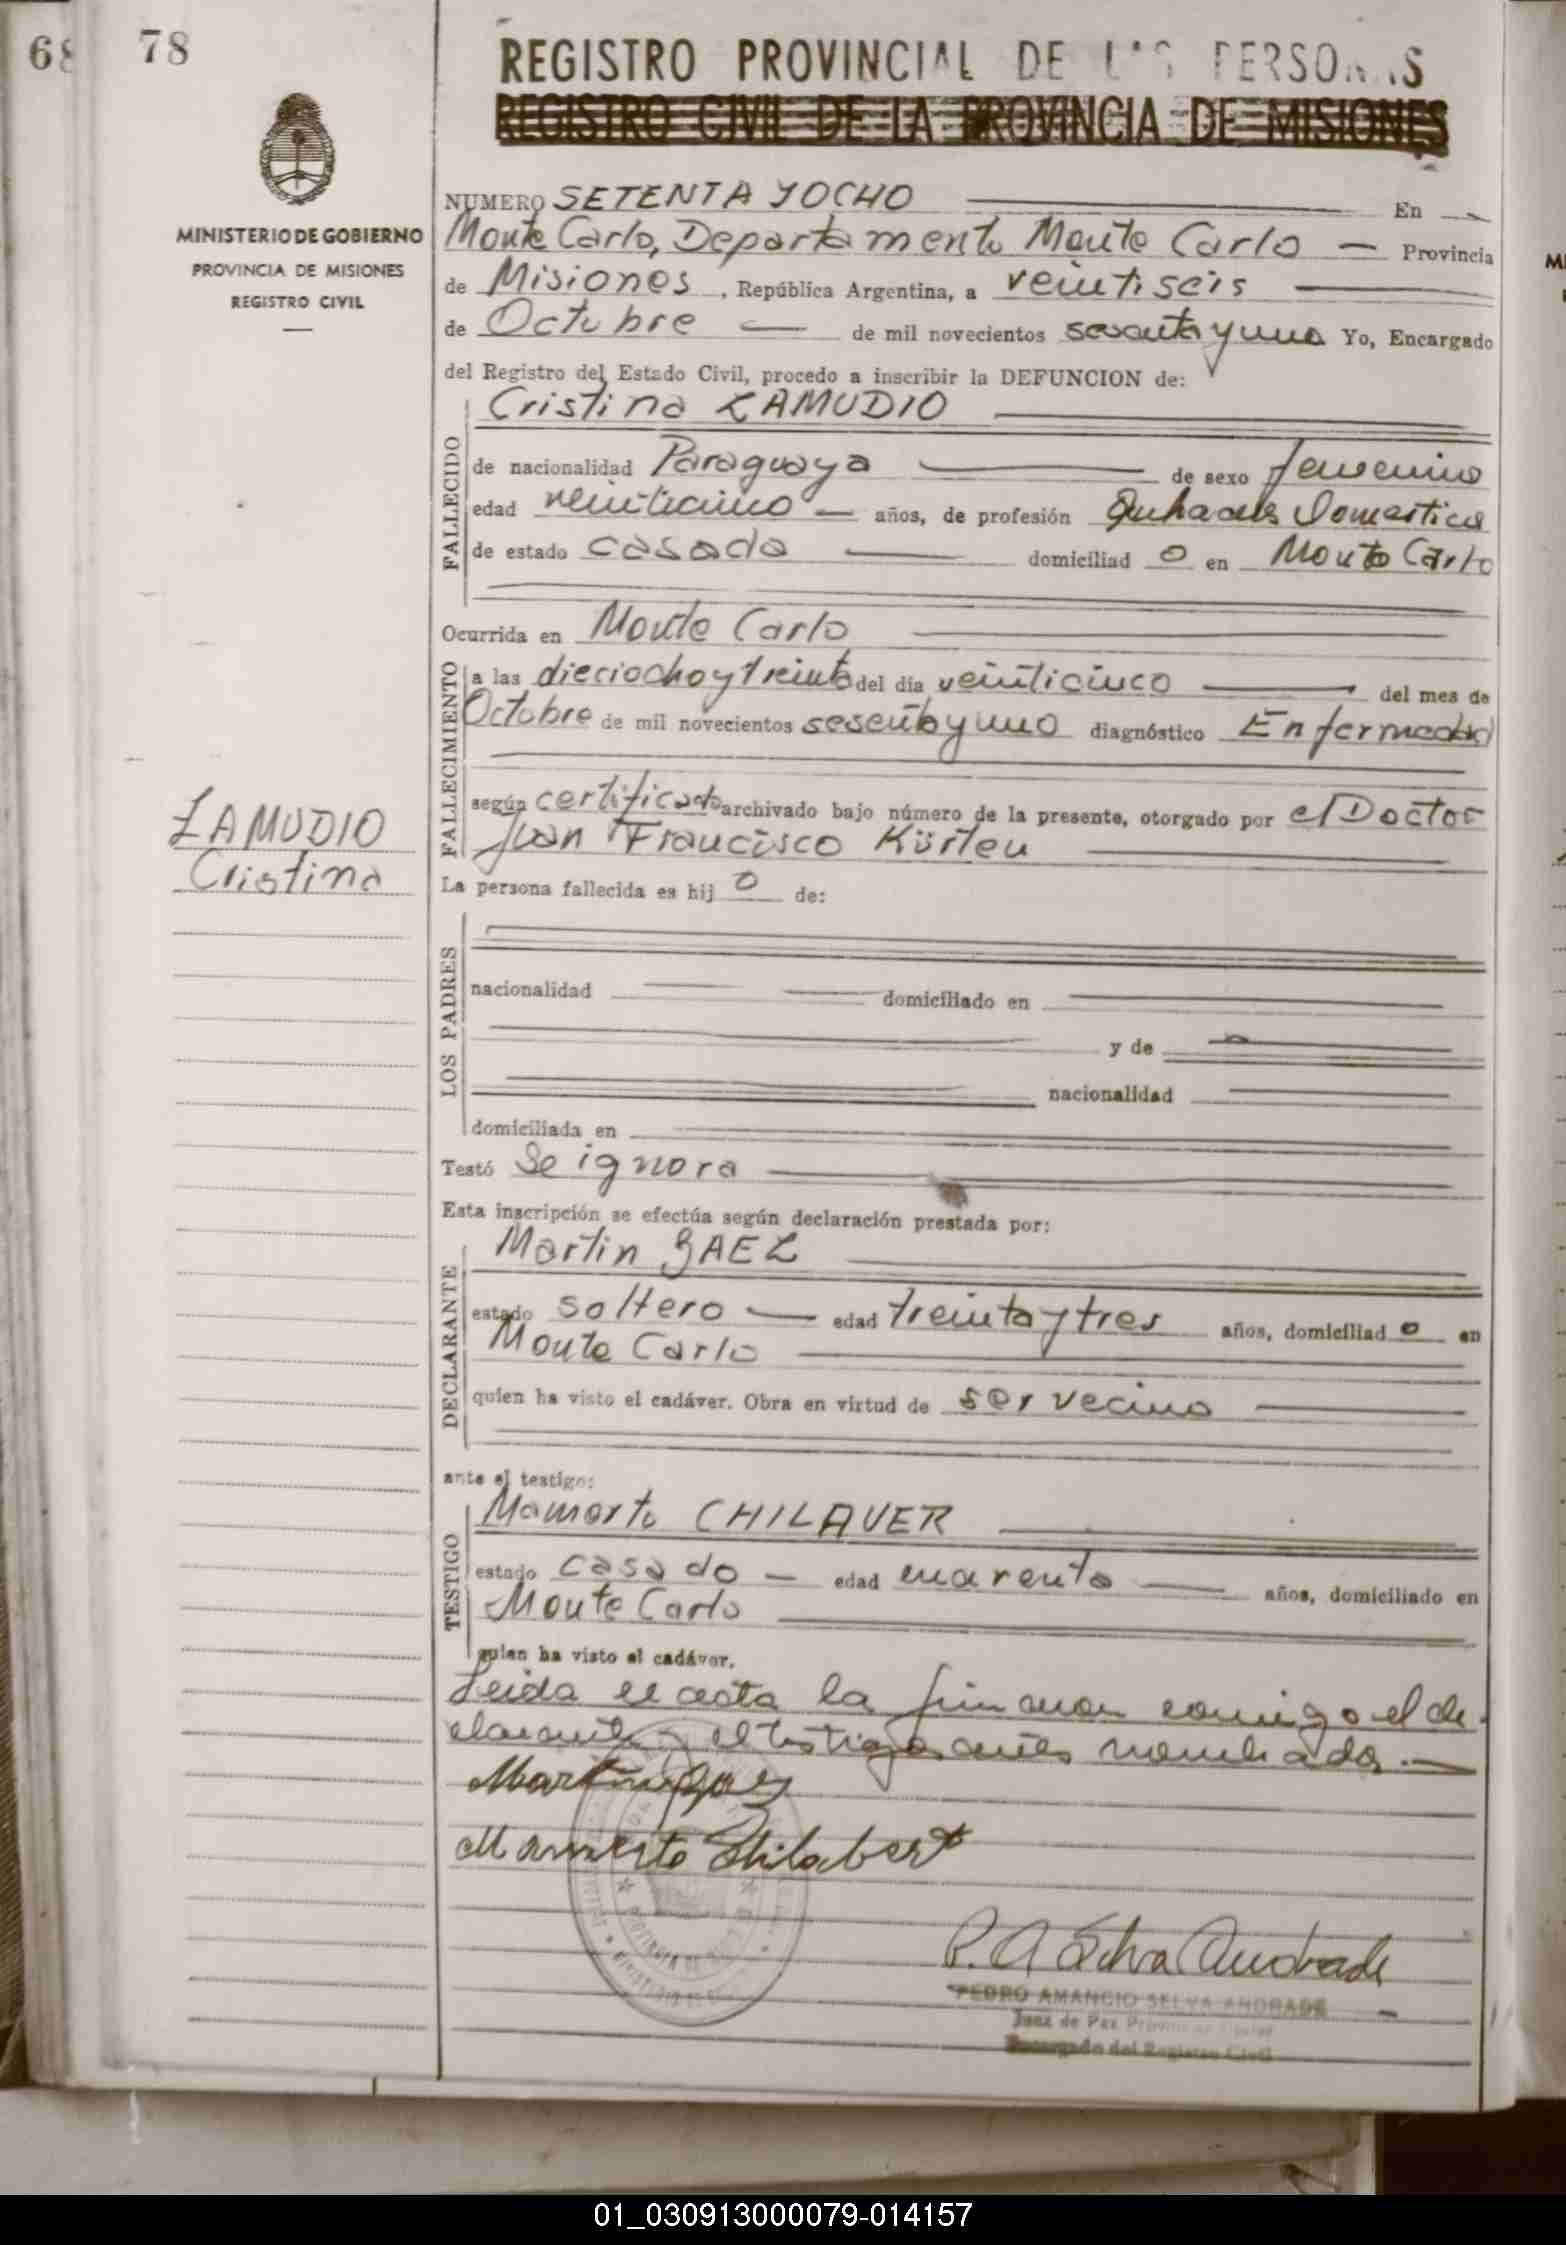 68
78
REGISTRO PROVINCIAL DE LAS PERSONAS
REGISTRO CIVIL DE LA PROVINCIA DE MISIONES
MINISTERIO DE GOBIERNO
PROVINCIA DE MISIONES
REGISTRO CIVIL
NUMERO SETENTA Y OCHO En
Monte Carlo, Departamento Monte Carlo — Provincia
de Misiones, República Argentina, a veintiseis
de Octubre de mil novecientos sesenta y uno Yo, Encargado
del Registro del Estado Civil, procedo a inscribir la DEFUNCION de:
FALLECIDO
Cristina ZAMUDIO
de nacionalidad Paraguaya de sexo femenino
edad veinticinco — años, de profesión Quehaceres Domesticos
de estado casada domiciliad o en Monte Carlo
Ocurrida en Monte Carlo
FALLECIMIENTO
a las dieciocho y treinta del día veinticinco del mes de
Octubre de mil novecientos sesenta y uno diagnóstico Enfermedad
según certificado archivado bajo número de la presente, otorgado por el Doctor
Juan Francisco Kürten
ZAMUDIO
Cristina
La persona fallecida es hij o de:
LOS PADRES
nacionalidad domiciliado en
y de
nacionalidad
domiciliada en
Testó Se ignora
Esta inscripción se efectúa según declaración prestada por:
DECLARANTE
Martin BAEZ
estado soltero — edad treinta y tres años, domiciliad o en
Monte Carlo
quien ha visto el cadáver. Obra en virtud de ser vecino
ante el testigo:
TESTIGO
Mamerto CHILAVER
estado casado — edad cuarenta años, domiciliado en
Monte Carlo
quien ha visto el cadáver.
Leida el acta la firman conmigo el de
clarante y el testigo antes nombrados.—
Martin Baez
Mamerto Chilabert
P. A Selva Andrade
PEDRO AMANCIO SELVA ANDRADE
Juez de Paz
Encargado del Registro Civil
01_030913000079-014157